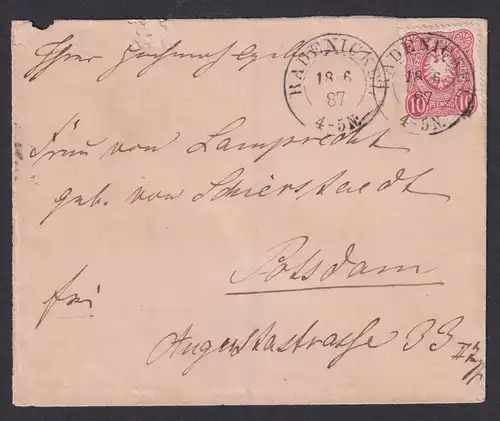 Ihrer Hochwohlgeboren
RADENICKEL
18 6
87
4-5N.
RADENICKEL
18 6
87
4-5N.
10 PFENNIG 10
Frau von Lamprecht
geb. von Schierstaedt
Potsdam
frei
Augustastrasse 33